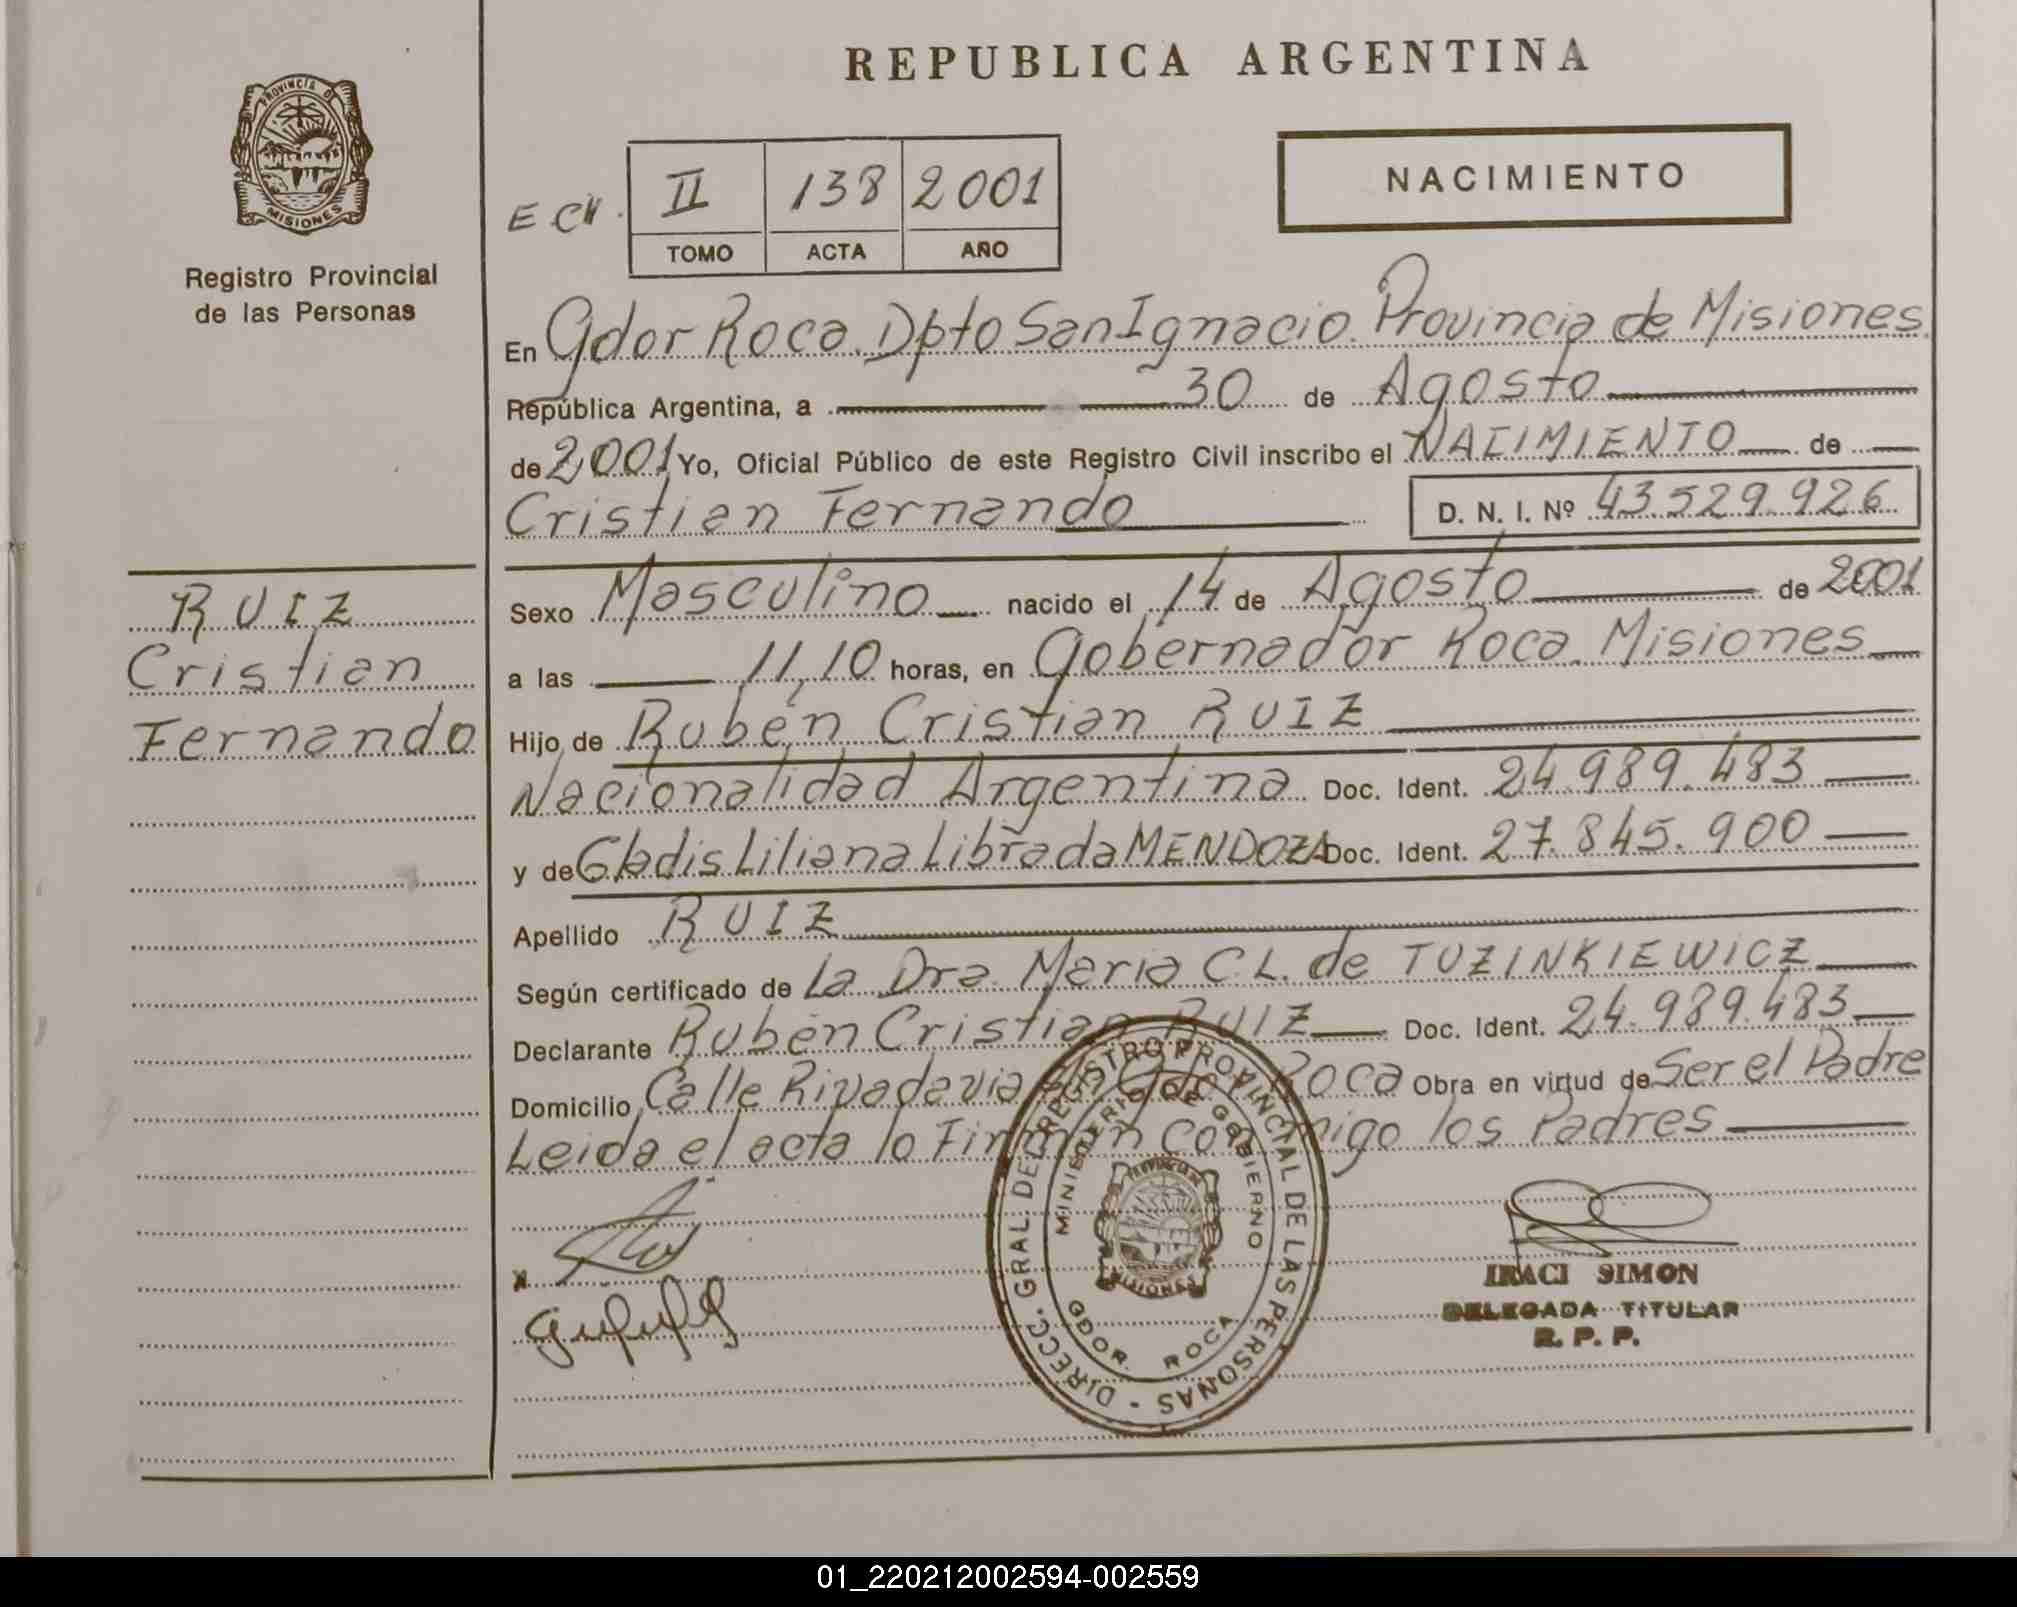 REPUBLICA ARGENTINA
PROVINCIA DE
MISIONES
Registro Provincial
de las Personas
NACIMIENTO
II 138 2001
TOMO ACTA AÑO
En Gdor Roca. Dpto San Ignacio. Provincia de Misiones
República Argentina, a 30 de Agosto
de 2001 Yo, Oficial Público de este Registro Civil inscribo el NACIMIENTO de
Cristian Fernando D. N. I. Nº 43.529.926
RUIZ
Cristian
Fernando
Sexo Masculino nacido el 14 de Agosto de 2001
a las 11,10 horas, en Gobernador Roca. Misiones
Hijo de Rubén Cristian RUIZ
Nacionalidad Argentina Doc. Ident. 24.989.483
y de Gladis Liliana Librada MENDOZA Doc. Ident. 27.845.900
Apellido RUIZ
Según certificado de La Dra. Maria C.L. de TUZINKIEWICZ
Declarante Rubén Cristian RUIZ Doc. Ident. 24.989.483
Domicilio Calle Rivadavia Roca Obra en virtud de Ser el Padre
Leida el acta lo Firman Conmigo los Padres
DIRECC. GRAL. DEL REGISTRO PROVINCIAL DE LAS PERSONAS
MINISTERIO DE GOBIERNO
MISIONES
GDOR. ROCA
IRACI SIMON
DELEGADA TITULAR
R. P. P.
01_220212002594-002559